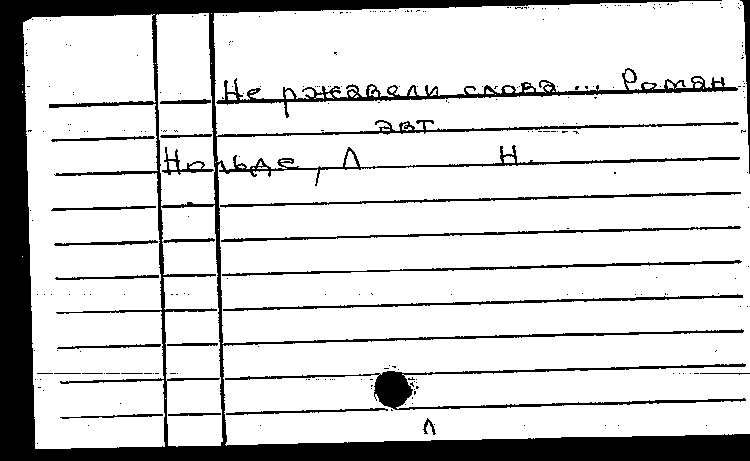 Не ржавели слова ... Роман
авт.
Нольде, Л Н.
Л